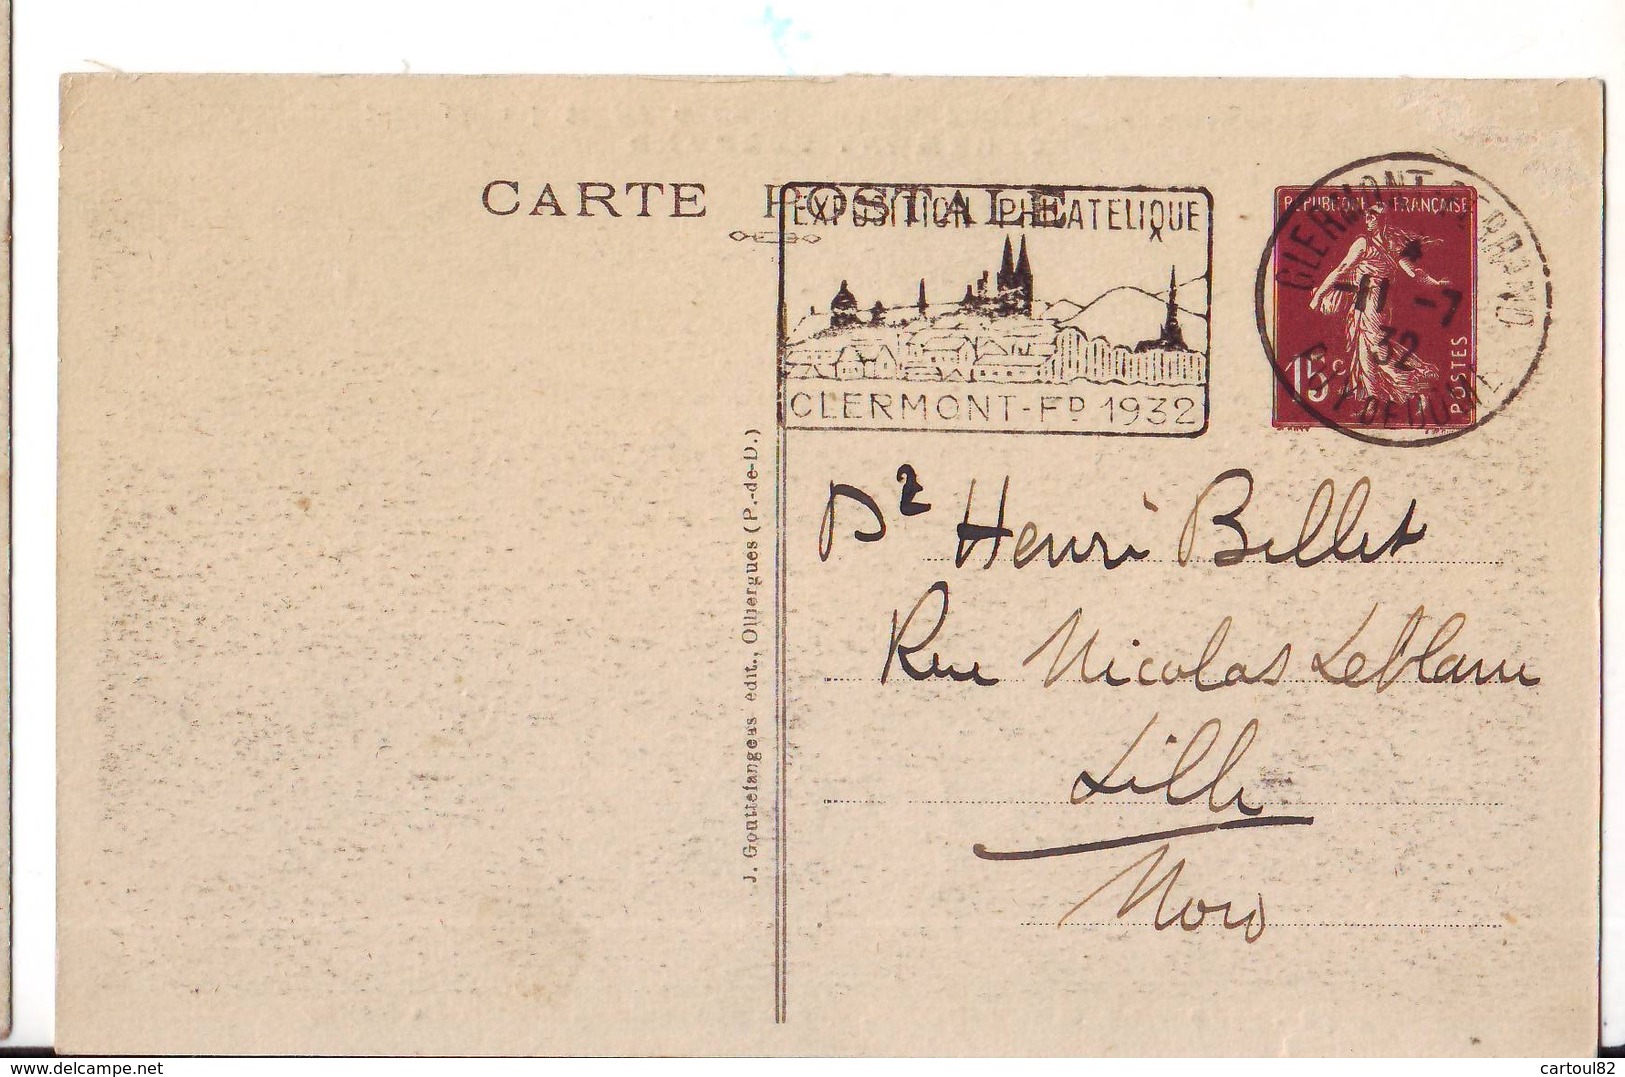 CARTE POSTALE
EXPOSITION PHILATELIQUE
CLERMONT-FD 1932
REPUBLIQUE FRANÇAISE
15c
POSTES
CLERMONT-FERRAND
11 -7
32
PUY DE DOME
Dr Henri Billet
Rue Nicolas Leblanc
Lille
Nord
J. Gouttefangeas édit., Olliergues (P.-de-D.)
delcampe.net
cartoul82